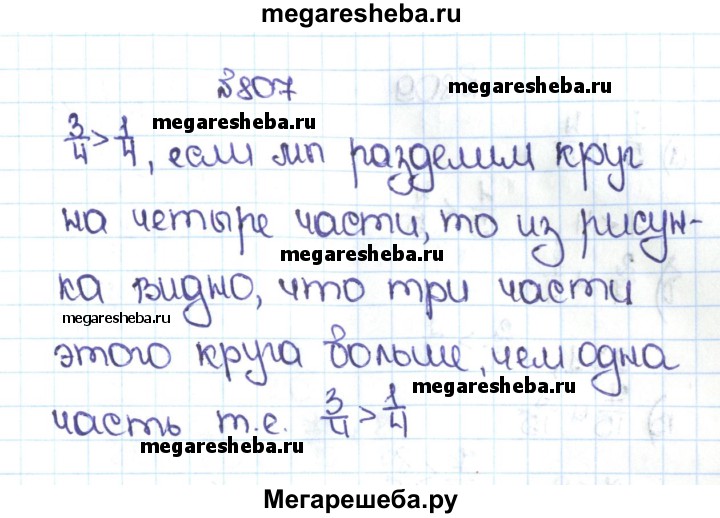 megaresheba.ru
№807
megaresheba.ru
3/4 > 1/4, если мы разделим круг
megaresheba.ru
на четыре части, то из рисун-
megaresheba.ru
ка видно, что три части
megaresheba.ru
этого круга больше, чем одна
megaresheba.ru
часть т.е. 3/4 > 1/4
megaresheba.ru
Мегарешеба.ру